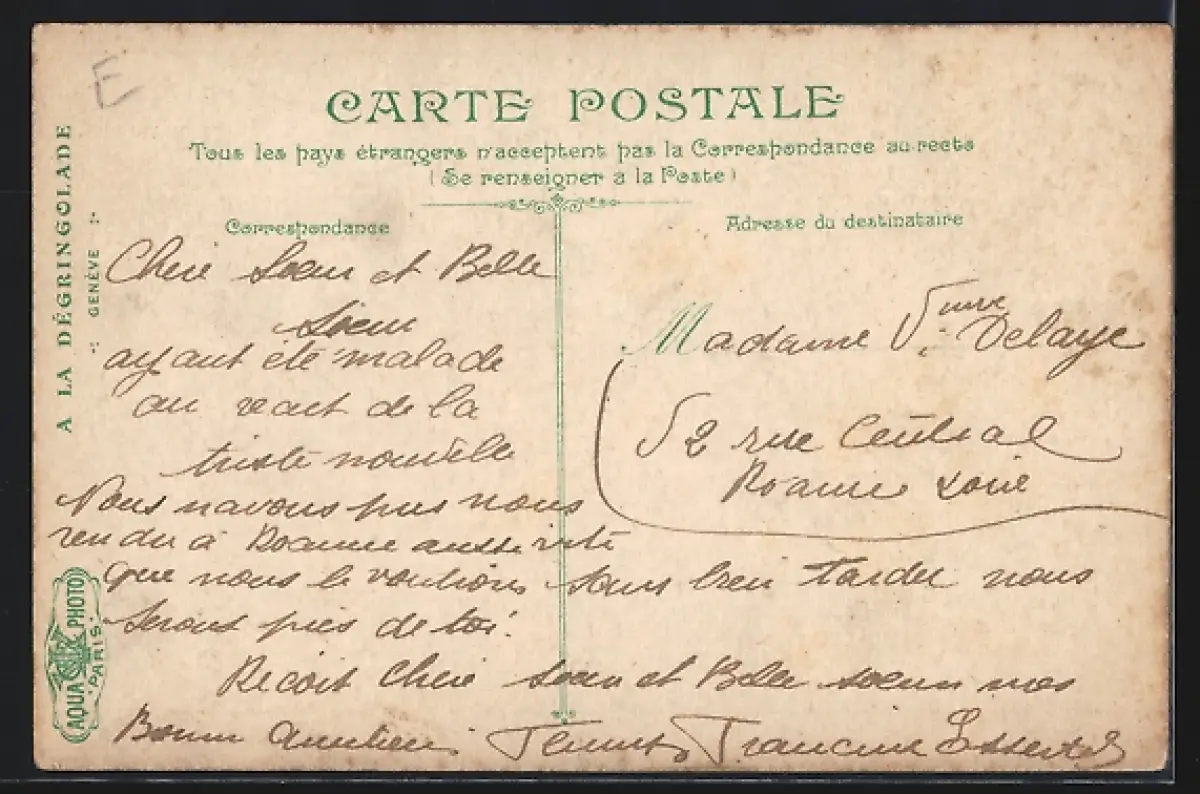 E
CARTE POSTALE
Tous les pays étrangers n'acceptent pas la Correspondance au recto
(Se renseigner a la Poste)
Correspondance
Adresse du destinataire
A LA DÉGRINGOLADE
GENÈVE
AQUA PHOTO
PARIS
Chere Soeur et Belle
Soeur
ayant été malade
au de la
triste nouvele
Nous navons pas nous
rendu a Roanne aussi vite
que nous le voulions sans bien tarder nous
serons pres de toi.
Recoit Chere soeur et Belle soeur nos
Bonne Francine Essertel
Madame Veuve Delaye
52 rue Central
Roanne Loire